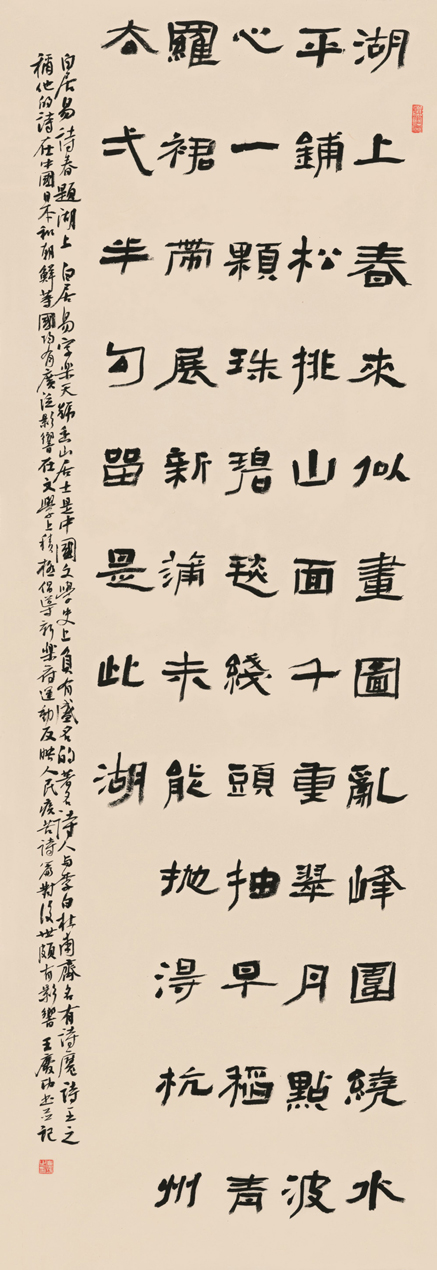 湖上春來似畫圖亂峰圍繞水
平鋪松排山面千重翠月點波
心一顆珠碧毯綫頭抽早稻青
羅裙帶展新蒲未能拋得杭州
去弌半勾留是此湖
白居易詩春題湖上 白居易字樂天號香山居士是中國文學史上負有盛名的著名詩人与李白杜甫齊名有詩魔詩王之
稱他的詩在中國日本和朝鮮等國均有廣泛影響在文學上積極倡導新樂府運動反映人民疾苦詩篇對後世頗有影響 王慶功書并記